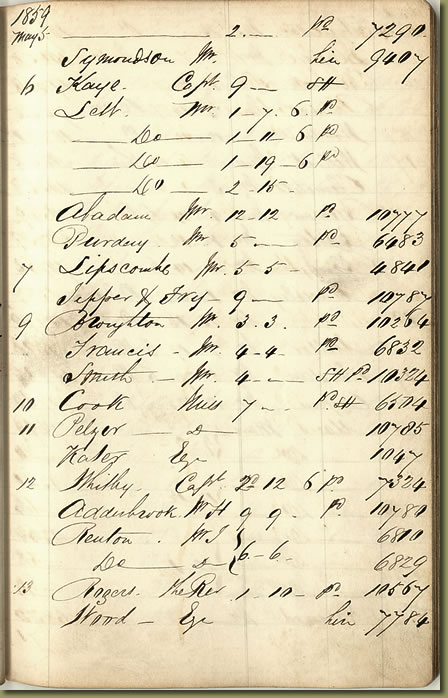 1859
May 5 ——— 2. — pd 7290
Symondson Mr. hire 9407
6 Kaye. Capt 9 — SH
Lett Mr. 1-7. 6 pd
— Do — 1-11-6 pd
— Do — 1-19-6 pd
— Do — 2-15-
Abadam Mr. 12-12 pd 10777
Purdey Mr 5 — pd 6483
7 Lipscombe Mr. 5 5 - 4841
Tepper & Fry - 9 — pd 10787
9 Broughton Mr. 3. 3. pd 10264
Francis - Mr. 4-4- pd 6832
Smith - Mr. 4 — SH Pd 10324
10 Cook Miss 7 — Pd SH 6504
11 Pelzer — D 10785
Kater Eqe 1047
12 Whitby. Capt 22 12 6 pd 7324
Adderbrook Mr H 9 9. pd 10780
Renton. Mr J 6810
Do — D {6-6- 6829
13 Rogers. The Rev. 1-10- pd 10567
Wood - Eqe hire 7784